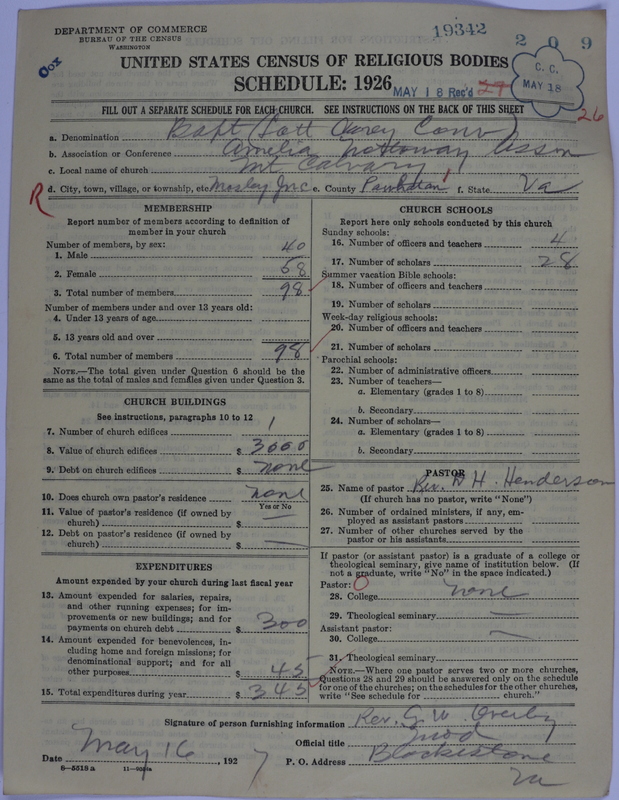 DEPARTMENT OF COMMERCE
BUREAU OF THE CENSUS
WASHINGTON
19342
209
UNITED STATES CENSUS OF RELIGIOUS BODIES
SCHEDULE: 1926
MAY 18 Rec'd
C. C.
MAY 18
26
FILL OUT A SEPARATE SCHEDULE FOR EACH CHURCH. SEE INSTRUCTIONS ON THE BACK OF THIS SHEET
a. Denomination Bapt (Lott Carey Conv)
b. Association or Conference Amelia Nottoway Asson
c. Local name of church Mt Calvary
R
d. City, town, village, or township, etc Mosley Junc e. County Powhatan f. State Va
MEMBERSHIP
Report number of members according to definition of
member in your church
Number of members, by sex:
1. Male 40
2. Female 58
3. Total number of members 98
Number of members under and over 13 years old:
4. Under 13 years of age
5. 13 years old and over
6. Total number of members 98
NOTE.—The total given under Question 6 should be the
same as the total of males and females given under Question 3.
CHURCH BUILDINGS
See instructions, paragraphs 10 to 12
7. Number of church edifices 1
8. Value of church edifices $ 3000
9. Debt on church edifices $ none
10. Does church own pastor's residence none
Yes or No
11. Value of pastor's residence (if owned by
church) $ —
12. Debt on pastor's residence (if owned by
church) $ —
EXPENDITURES
Amount expended by your church during last fiscal year
13. Amount expended for salaries, repairs,
and other running expenses; for im-
provements or new buildings; and for
payments on church debt $ 300
14. Amount expended for benevolences, in-
cluding home and foreign missions; for
denominational support; and for all
other purposes $ 45
15. Total expenditures during year $ 345
CHURCH SCHOOLS
Report here only schools conducted by this church
Sunday schools:
16. Number of officers and teachers 4
17. Number of scholars 28
Summer vacation Bible schools:
18. Number of officers and teachers
19. Number of scholars
Week-day religious schools:
20. Number of officers and teachers
21. Number of scholars
Parochial schools:
22. Number of administrative officers
23. Number of teachers—
a. Elementary (grades 1 to 8)
b. Secondary
24. Number of scholars—
a. Elementary (grades 1 to 8)
b. Secondary
PASTOR
25. Name of pastor Rev. H. Henderson
(If church has no pastor, write "None")
26. Number of ordained ministers, if any, em-
ployed as assistant pastors
27. Number of other churches served by the
pastor or his assistants
If pastor (or assistant pastor) is a graduate of a college or
theological seminary, give name of institution below. (If
not a graduate, write "No" in the space indicated.)
Pastor: O
28. College none
29. Theological seminary —
Assistant pastor:
30. College —
31. Theological seminary
NOTE.—Where one pastor serves two or more churches,
Questions 28 and 29 should be answered only on the schedule
for one of the churches; on the schedules for the other churches,
write "See schedule for church."
Signature of person furnishing information Rev. G. W. Overby
Official title Mod
Date May 16, 1927 P. O. Address Blackstone
Va
6—5518 a